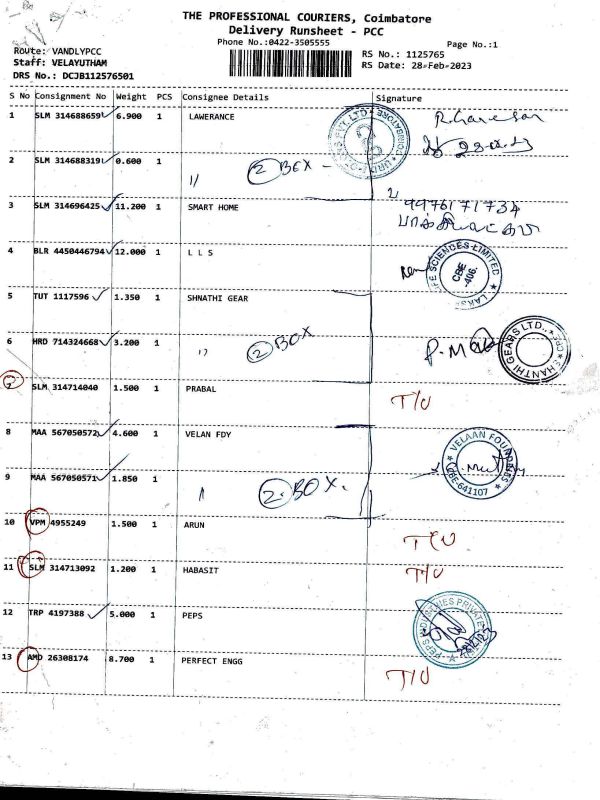 THE PROFESSIONAL COURIERS, Coimbatore
Delivery Runsheet - PCC
Phone No.:0422-3505555
Page No.:1
Route: VANDLYPCC
Staff: VELAYUTHAM
DRS No.: DCJB112576501
RS No.: 1125765
RS Date: 28-Feb-2023
S No Consignment No Weight PCS Consignee Details Signature
1 SLM 314688659 6.900 1 LAWERANCE
2 SLM 314688319 0.600 1 〃 2 BOX
3 SLM 314696425 11.200 1 SMART HOME 9976171734
4 BLR 4450446794 12.000 1 L L S
LIFE SCIENCES LIMITED
CBE
-406.
5 TUT 1117596 1.350 1 SHNATHI GEAR
6 HRD 714324668 3.200 1 〃 2 BOX
SHANTHI GEARS LTD.,
7 SLM 314714040 1.500 1 PRABAL T/U
8 MAA 567050572 4.600 1 VELAN FDY
VELAAN FOUNDRIES
CBE-641107
9 MAA 567050571 1.850 1 〃 2 BOX.
10 VPM 4955249 1.500 1 ARUN T/U
11 SLM 314713092 1.200 1 HABASIT T/U
12 TRP 4197388 5.000 1 PEPS
28/2/23
13 AMD 26308174 8.700 1 PERFECT ENGG T/U